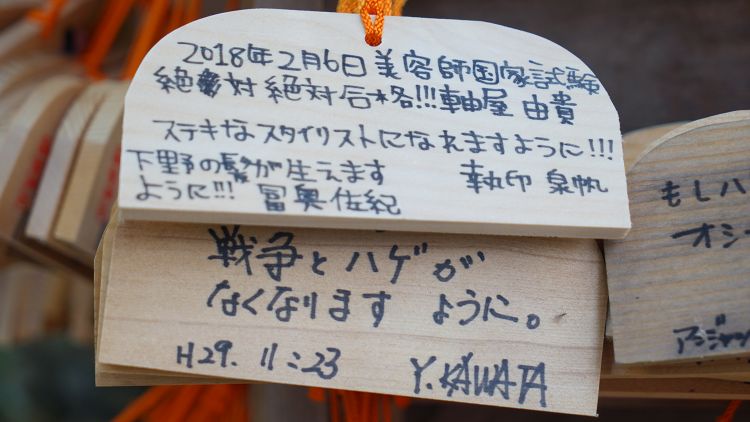 2018年2月6日美容師国家試験
絶対絶対合格!!!軸屋 由貴
ステキなスタイリストになれますように!!!
下野の髪が生えます
ように!!! 冨奥佐紀
執印 泉帆
戦争とハゲが
なくなります ように。
H29. 11:23 Y.KAWATA
もしハ
オシ
アンジャッ